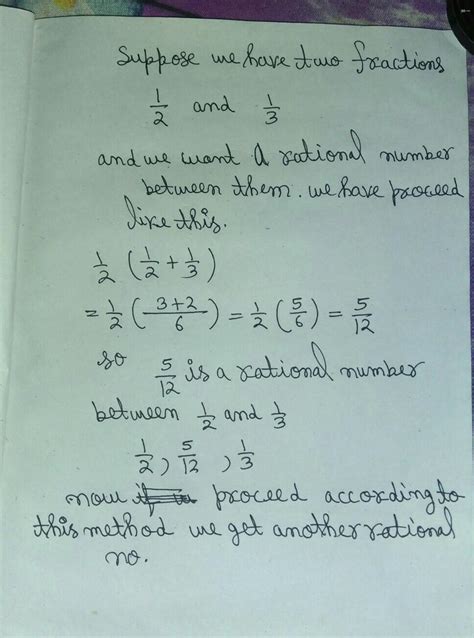 Suppose we have two fractions
1/2 and 1/3
and we want a rational number
between them. we have proceed
like this.
1/2 (1/2 + 1/3)
= 1/2 ( 3+2/6 ) = 1/2 (5/6) = 5/12
so 5/12 is a rational number
between 1/2 and 1/3
1/2 , 5/12 , 1/3
now proceed according to
this method we get another rational
no.